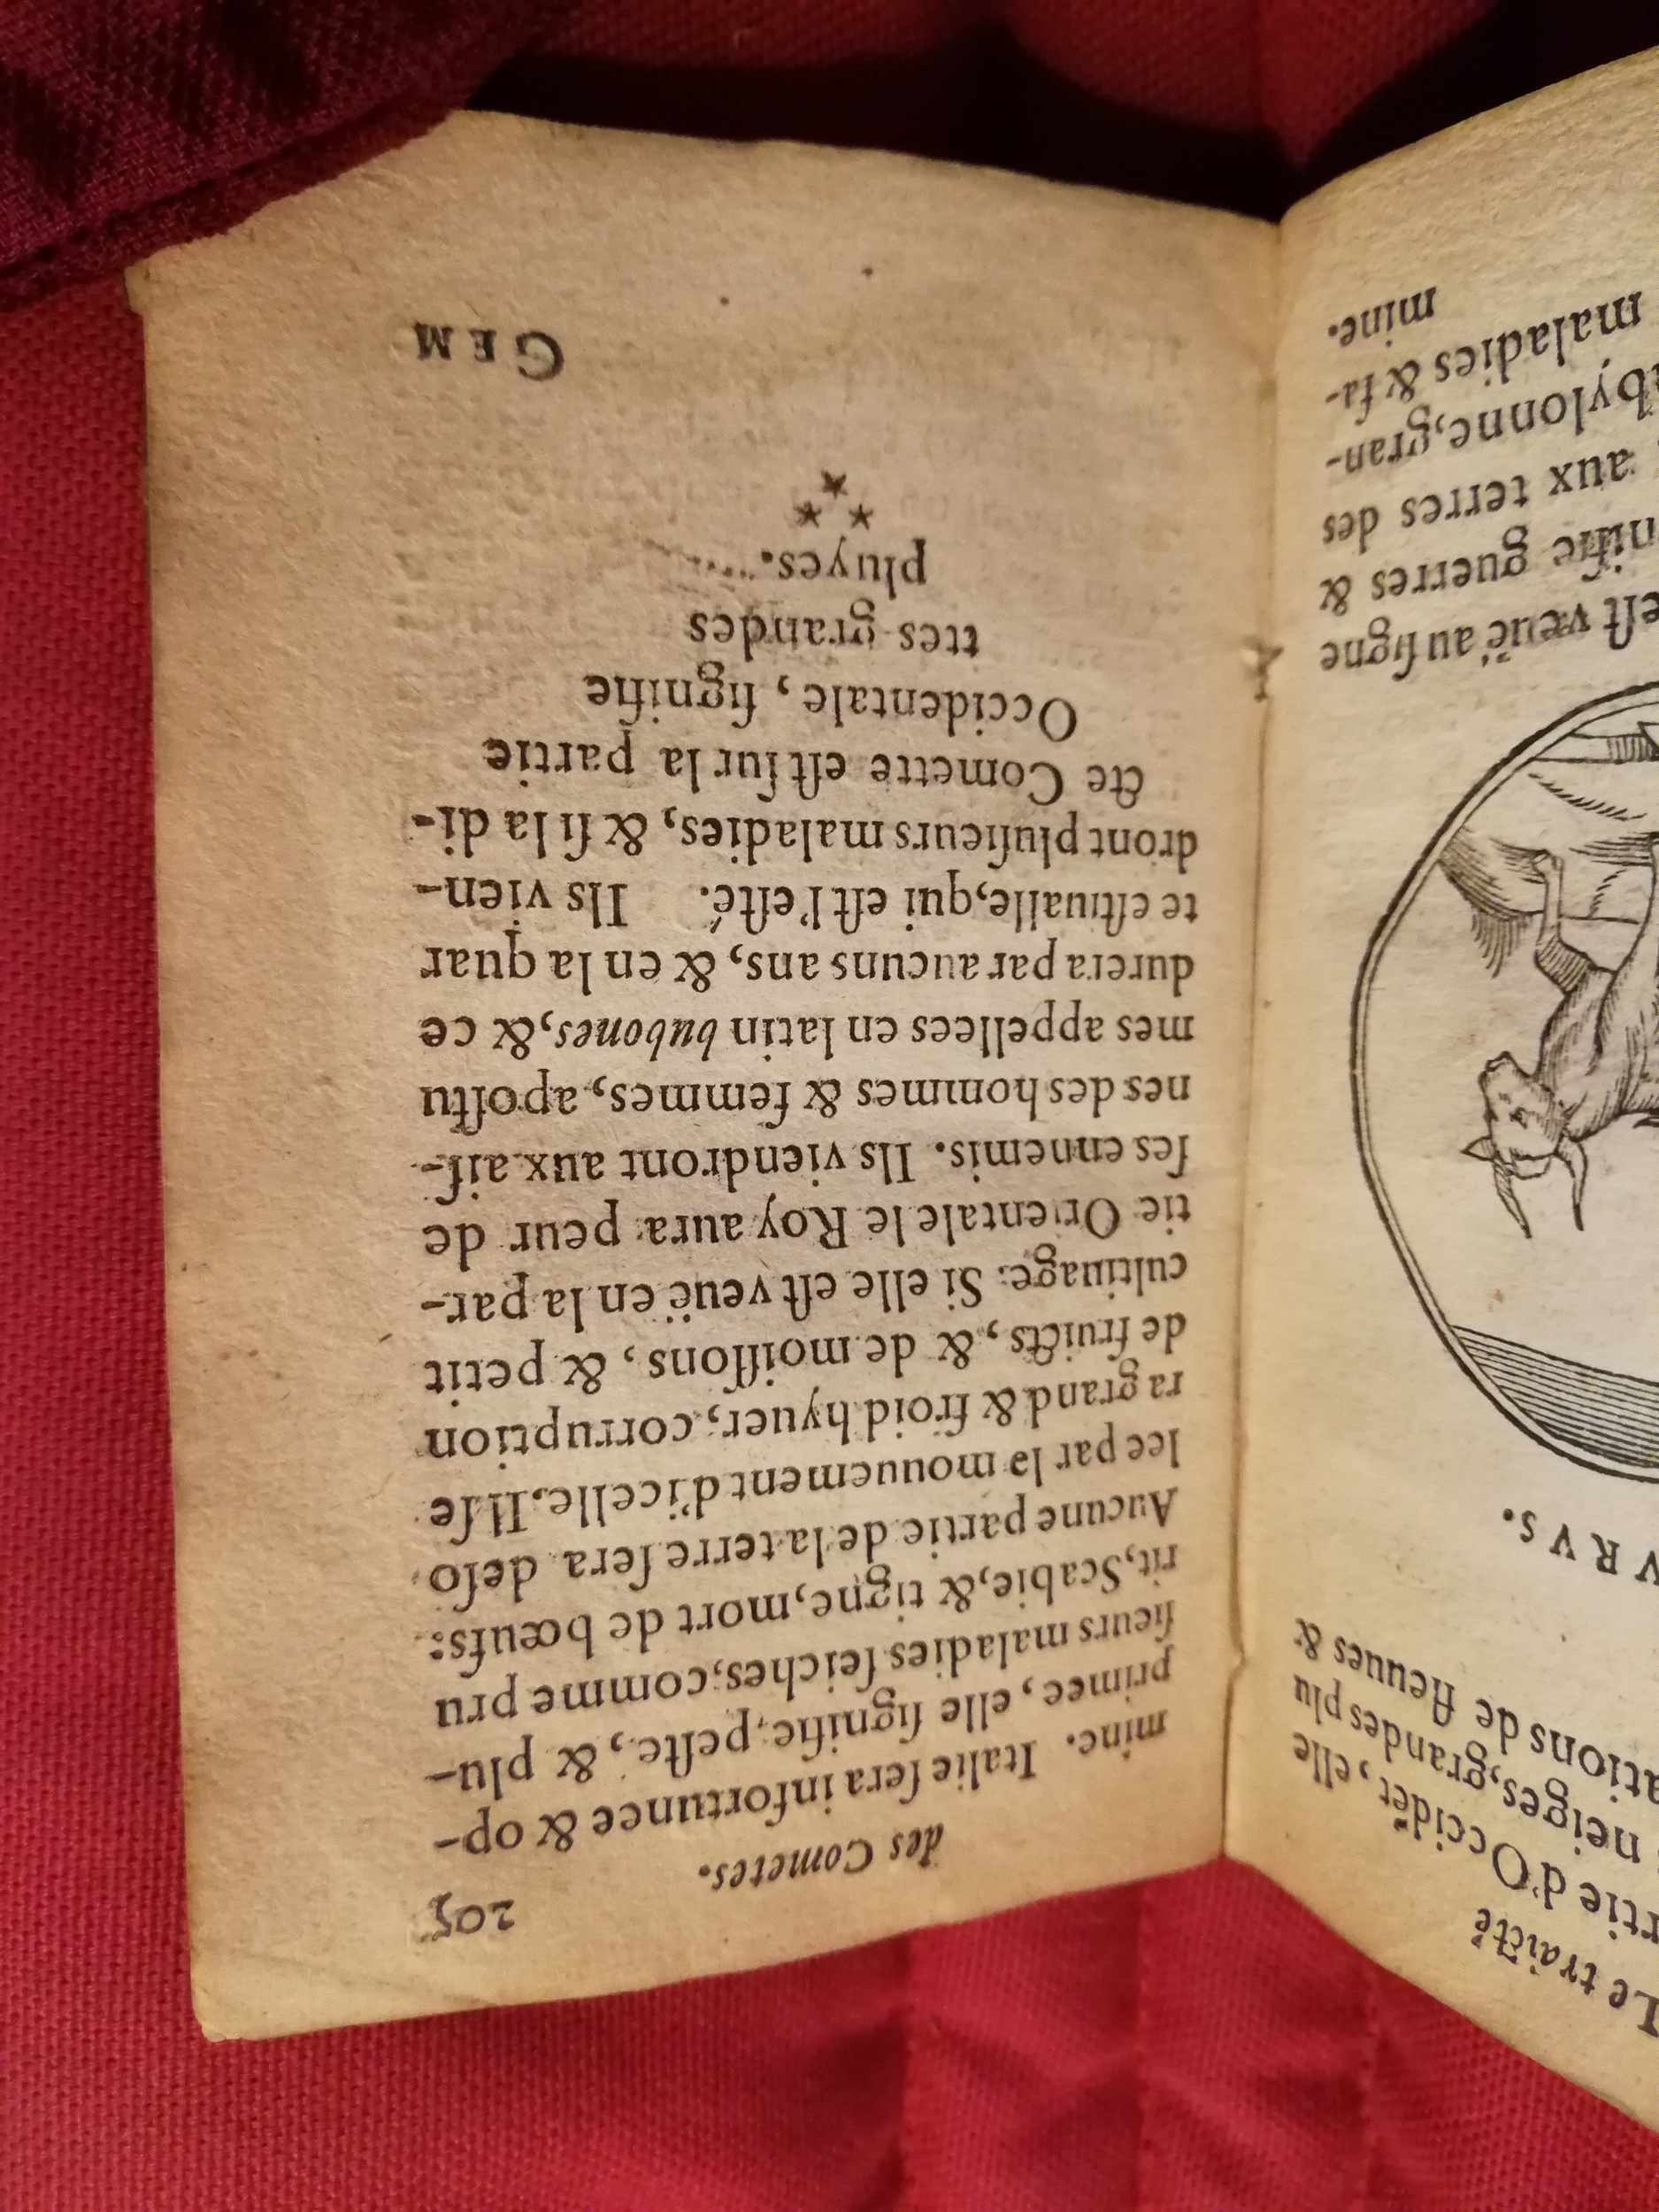 Le traicté
rtie d'Occidẽt, elle
neiges, grandes plu
ations de fleuues &
VRVS.
eſt veuë au ſigne
nifie guerres &
aux terres des
bylonne, gran-
maladies & fa-
mine.
des Cometes. 205
mine. Italie ſera infortunee & op-
primee, elle ſignifie, peſte, & plu-
ſieurs maladies ſeiches, comme pru
rit, Scabie, & tigne, mort de bœufs:
Aucune partie de la terre ſera deſo
lee par le mouuement d'icelle. Il ſe
ra grand & froid hyuer, corruption
de fruicts, & de moiſſons, & petit
cultiuage: Si elle eſt veuë en la par-
tie Orientale le Roy aura peur de
ſes ennemis. Ils viendront aux aiſ-
nes des hommes & femmes, apoſtu
mes appellees en latin bubones, & ce
durera par aucuns ans, & en la quar
te eſtiualle, qui eſt l'eſté. Ils vien-
dront pluſieurs maladies, & ſi la di-
cte Comette eſt ſur la partie
Occidentale, ſignifie
ttes grandes
pluyes.
* * *
GEM